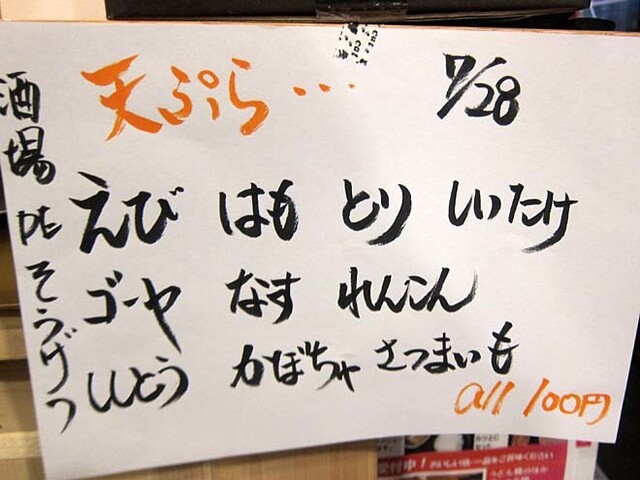 天ぷら… 7/28
酒場 DE そうげつ
えび はも とり しいたけ
ゴーヤ なす れんこん
ししとう かぼちゃ さつまいも
all 100円